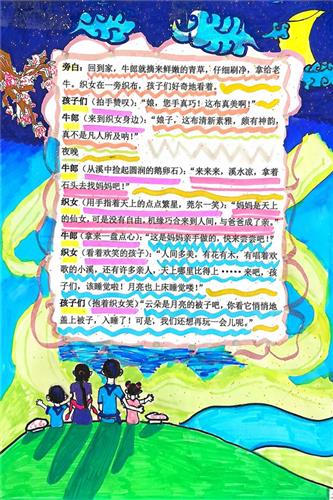 旁白：回到家，牛郎就摘来鲜嫩的青草，仔细刷净，拿给老
牛。织女在一旁织布，孩子们好奇地看着。
孩子们（拍手赞叹）：“娘，您手真巧！这布真美啊！”
牛郎（来到织女身边）：“娘子，这布清新素雅，颇有神韵，
真不是凡人所及呐！”
夜晚
牛郎（从溪中捡起圆润的鹅卵石）：“来来来，溪水凉，拿着
石头去找妈妈吧！”
织女（用手指着天上的点点繁星，莞尔一笑）：“妈妈是天上
的仙女，可是没有自由，机缘巧合来到人间，与爸爸成了亲。”
牛郎（拿来一盘点心）：“这是妈妈亲手做的，快来尝尝吧！”
织女（看着欢笑的孩子）：“人间多美，有花有木，有唱着欢
歌的小溪，还有许多亲人，天上哪里比得上……来吧，孩
子们，该睡觉啦！月亮也上床睡觉喽！”
孩子们（抱着织女笑）“云朵是月亮的被子吧，你看它悄悄地
盖上被子，入睡了！可是，我们还想再玩一会儿呢。”